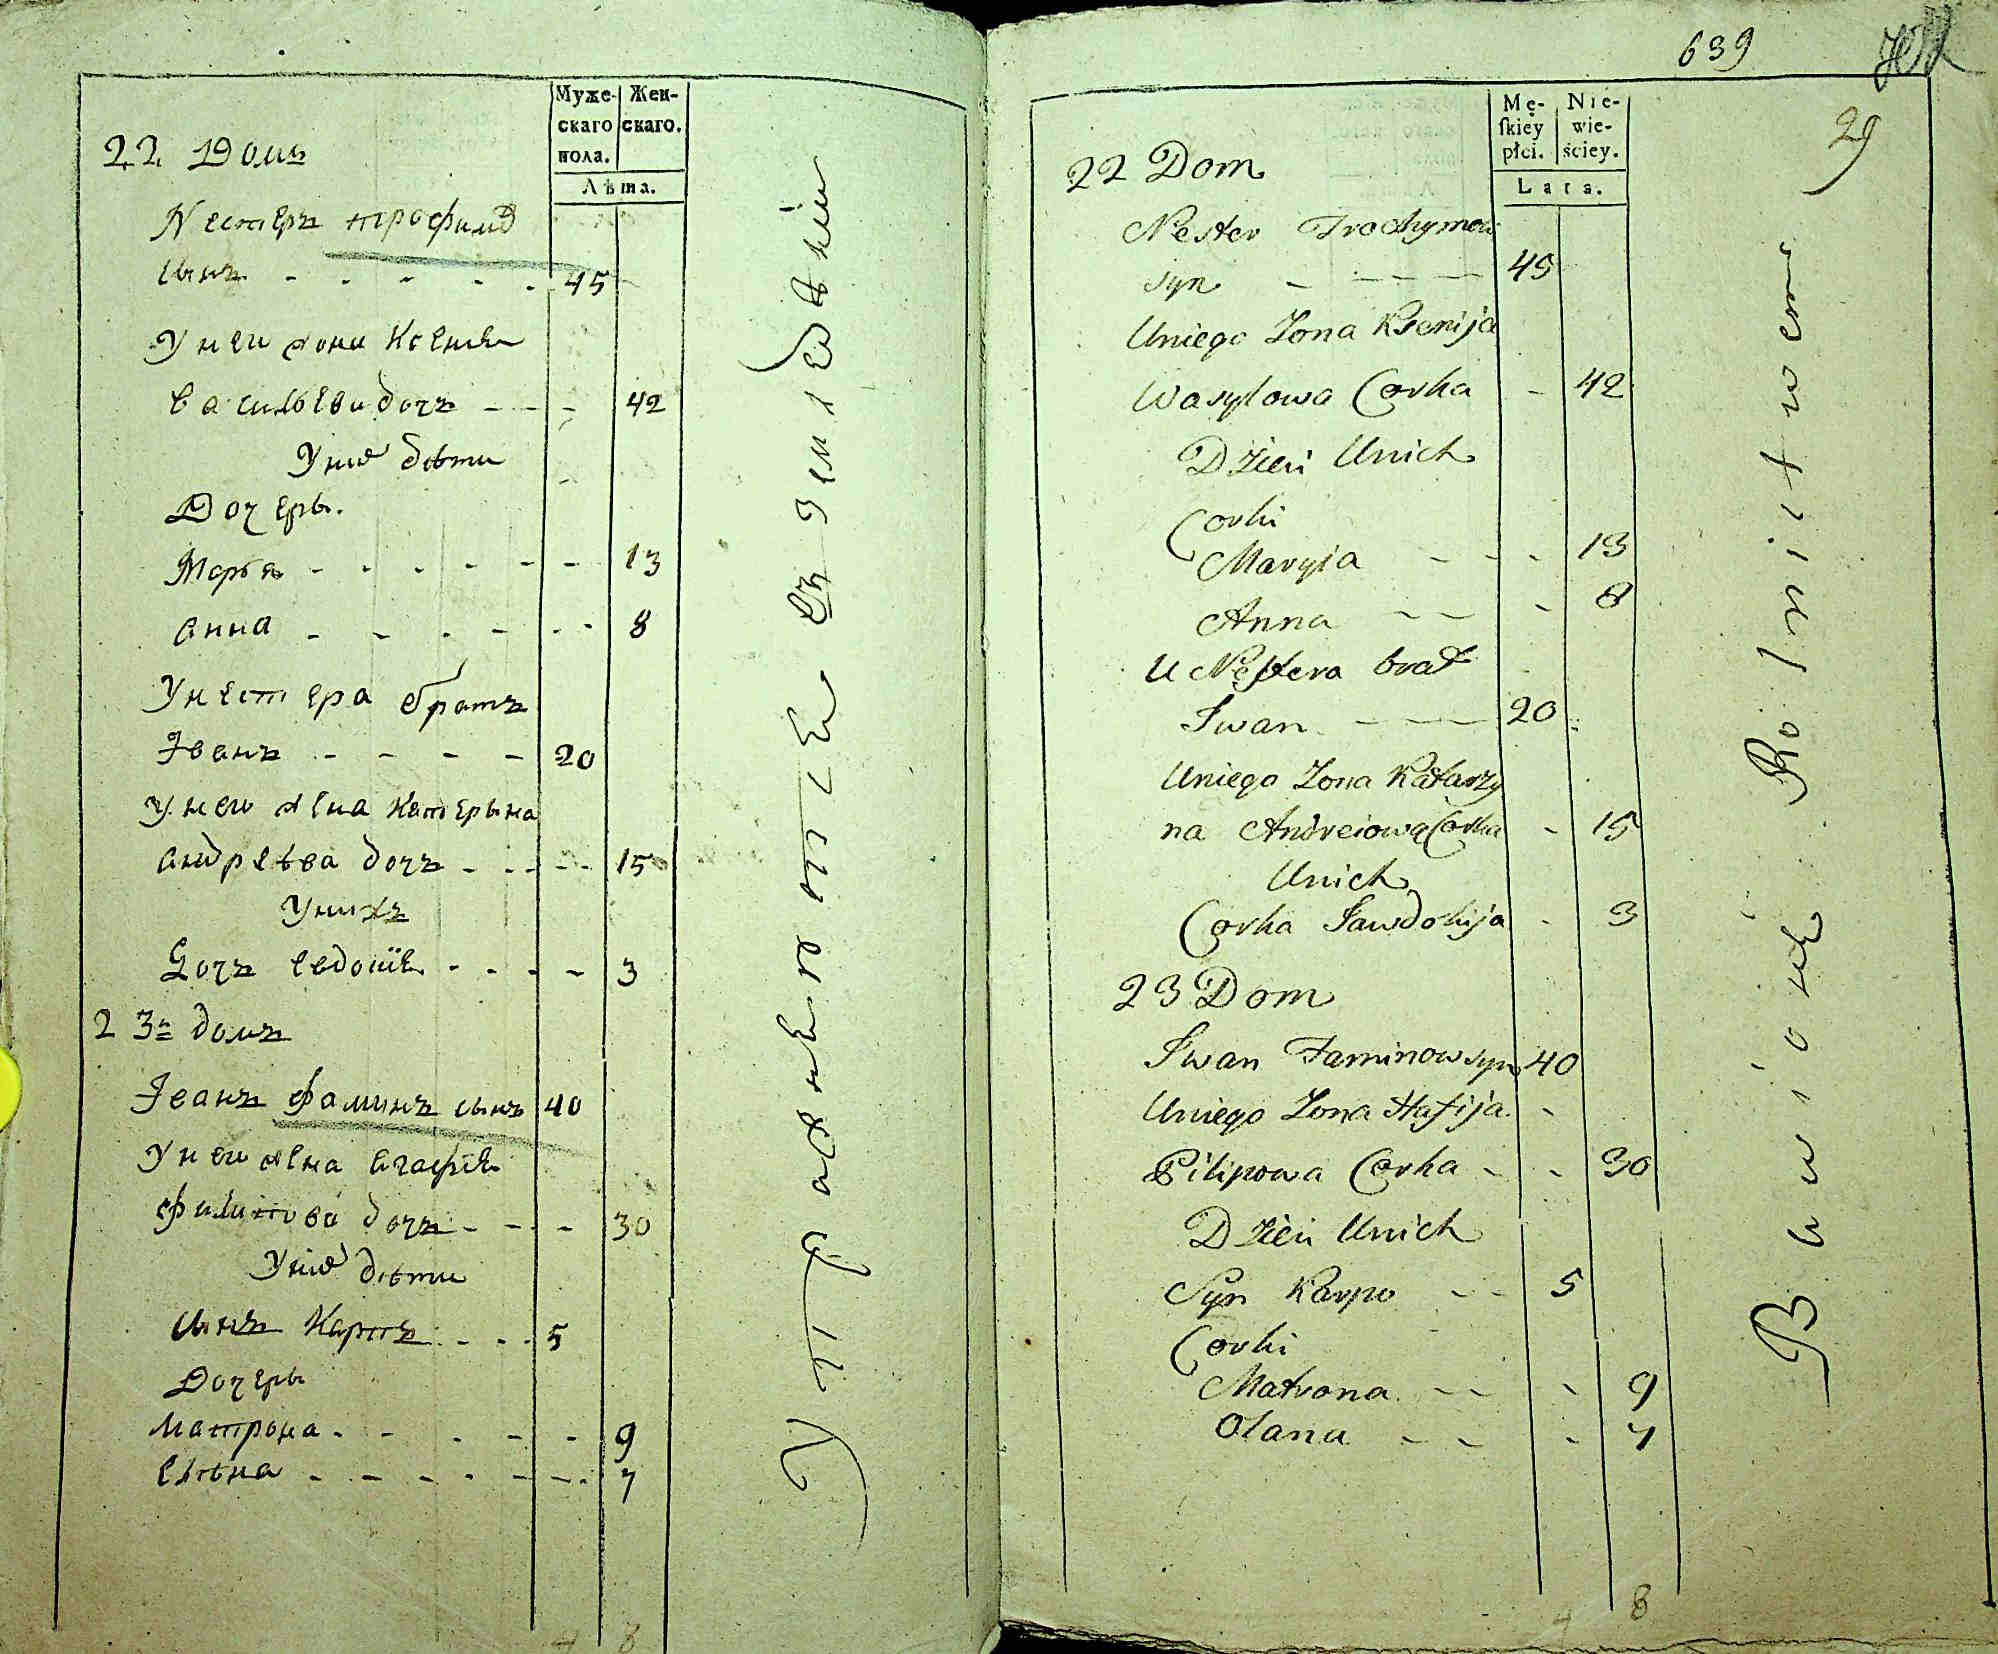 Муже-
скаго
пола.
Жен-
скаго.
Лѣта.
22 Домъ
Нестеръ трофимов
сынъ - - - - - 45
У него жона Ксения
васильева дочъ - - - 42
У них дѣти
Дочеры.
Марья - - - - - - 13
анна - - - - - - 8
У нестера братъ
Іванъ - - - - 20
У него жена Катерына
андрѣева дочъ - - - - - 15
У нихъ
Дочъ евдокія - - - - 3
23ъ домъ
Іванъ фаминъ сынъ 40
У него жена агафия
филипова дочъ - - - 30
У них дѣти
сынъ Карпъ - - - 5
Дочеры
матрона - - - - - 9
елѣна - - - - - - - 7
4 8
Упражнентся въ земледѣлии
639
29
Mę-
ſkiéy
płci.
Nie-
wie-
ściey.
Lata.
22 Dom
Nester Trochymow
syn - - - - 45
Uniego Zona Ksenija
Wasylowa Corka - 42
Dzieci Unich
Corki
Maryia - - - 13
Anna - - - 8
U Nestera brat
Iwan - - - 20
Uniego Zona Katarzy
na Andreiowa Corka - 15
Unich
Corka Jawdokija - 3
23 Dom
Iwan Faminow syn 40
Uniego Zona Hafija -
Pilipowa Corka - - 30
Dzieci Unich
Syn Karpo - - 5
Corki
Matrona - - - 9
Olana - - - 7
4 8
Bawionę Rolnictwem